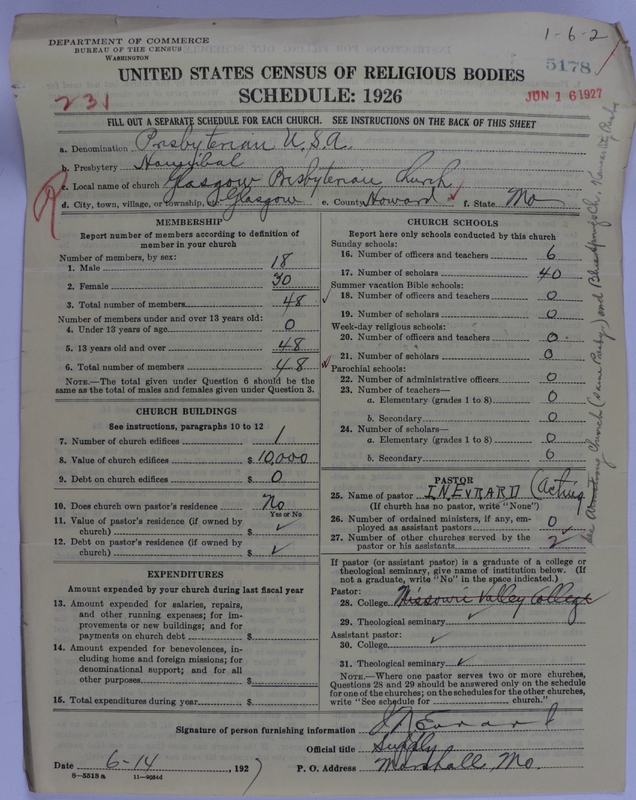 1-6-2
DEPARTMENT OF COMMERCE
BUREAU OF THE CENSUS
WASHINGTON
5178
UNITED STATES CENSUS OF RELIGIOUS BODIES
SCHEDULE: 1926
231
JUN 16 1927
FILL OUT A SEPARATE SCHEDULE FOR EACH CHURCH. SEE INSTRUCTIONS ON THE BACK OF THIS SHEET
a. Denomination Presbyterian U.S.A.
b. Presbytery Hannibal
c. Local name of church Glasgow Presbyterian Church
d. City, town, village, or township, Glasgow e. County Howard f. State Mo
R
MEMBERSHIP
Report number of members according to definition of
member in your church
Number of members, by sex:
1. Male 18
2. Female 30
3. Total number of members 48
Number of members under and over 13 years old:
4. Under 13 years of age 0
5. 13 years old and over 48
6. Total number of members 48
NOTE.—The total given under Question 6 should be the
same as the total of males and females given under Question 3.
CHURCH BUILDINGS
See instructions, paragraphs 10 to 12
7. Number of church edifices 1
8. Value of church edifices $ 10,000
9. Debt on church edifices $ 0
10. Does church own pastor's residence No
Yes or No
11. Value of pastor's residence (if owned by
church) $ ✓
12. Debt on pastor's residence (if owned by
church) $ ✓
EXPENDITURES
Amount expended by your church during last fiscal year
13. Amount expended for salaries, repairs,
and other running expenses; for im-
provements or new buildings; and for
payments on church debt $
14. Amount expended for benevolences, in-
cluding home and foreign missions; for
denominational support; and for all
other purposes $
15. Total expenditures during year $
CHURCH SCHOOLS
Report here only schools conducted by this church
Sunday schools:
16. Number of officers and teachers 6
17. Number of scholars 40
Summer vacation Bible schools:
18. Number of officers and teachers 0
19. Number of scholars 0
Week-day religious schools:
20. Number of officers and teachers 0
21. Number of scholars 0
Parochial schools:
22. Number of administrative officers 0
23. Number of teachers—
a. Elementary (grades 1 to 8) 0
b. Secondary 0
24. Number of scholars—
a. Elementary (grades 1 to 8) 0
b. Secondary 0
PASTOR
25. Name of pastor J.N. EVRARD (Acting
(If church has no pastor, write "None")
26. Number of ordained ministers, if any, em-
ployed as assistant pastors 0
27. Number of other churches served by the
pastor or his assistants 2
If pastor (or assistant pastor) is a graduate of a college or
theological seminary, give name of institution below. (If
not a graduate, write "No" in the space indicated.)
Pastor:
28. College Missouri Valley College
29. Theological seminary ✓
Assistant pastor:
30. College ✓
31. Theological seminary ✓
NOTE.—Where one pastor serves two or more churches,
Questions 28 and 29 should be answered only on the schedule
for one of the churches; on the schedules for the other churches,
write "See schedule for church."
Signature of person furnishing information J N Evrard
Official title Supply
Date 6-14, 1927 P. O. Address Marshall, Mo.
8—5518 a 11—9054d
Armstrong Church (same Presby.) and